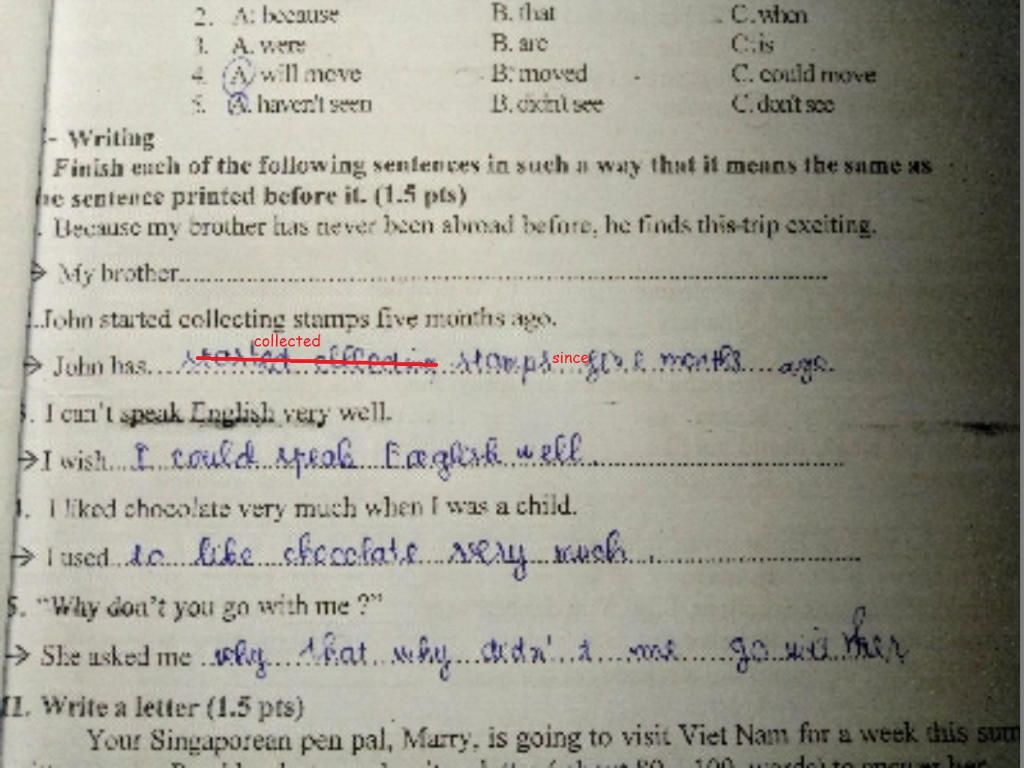 2. A: because B. that C. when
3. A. were B. are C. is
4. A. will move B. moved C. could move
5. A. haven't seen B. didn't see C. don't see
- Writing
Finish each of the following sentences in such a way that it means the same as
he sentence printed before it. (1.5 pts)
. Because my brother has never been abroad before, he finds this trip exciting.
→ My brother
John started collecting stamps five months ago.
collected
→ John has started collecting stamps since five months ago.
3. I can't speak English very well.
→ I wish I could speak English well
I liked chocolate very much when I was a child.
→ I used to like chocolate very much.
5. "Why don't you go with me ?"
→ She asked me why that why didn't me go with her
II. Write a letter (1.5 pts)
Your Singaporean pen pal, Marry, is going to visit Viet Nam for a week this sum
letter (about 80 - 100 words) to answer her